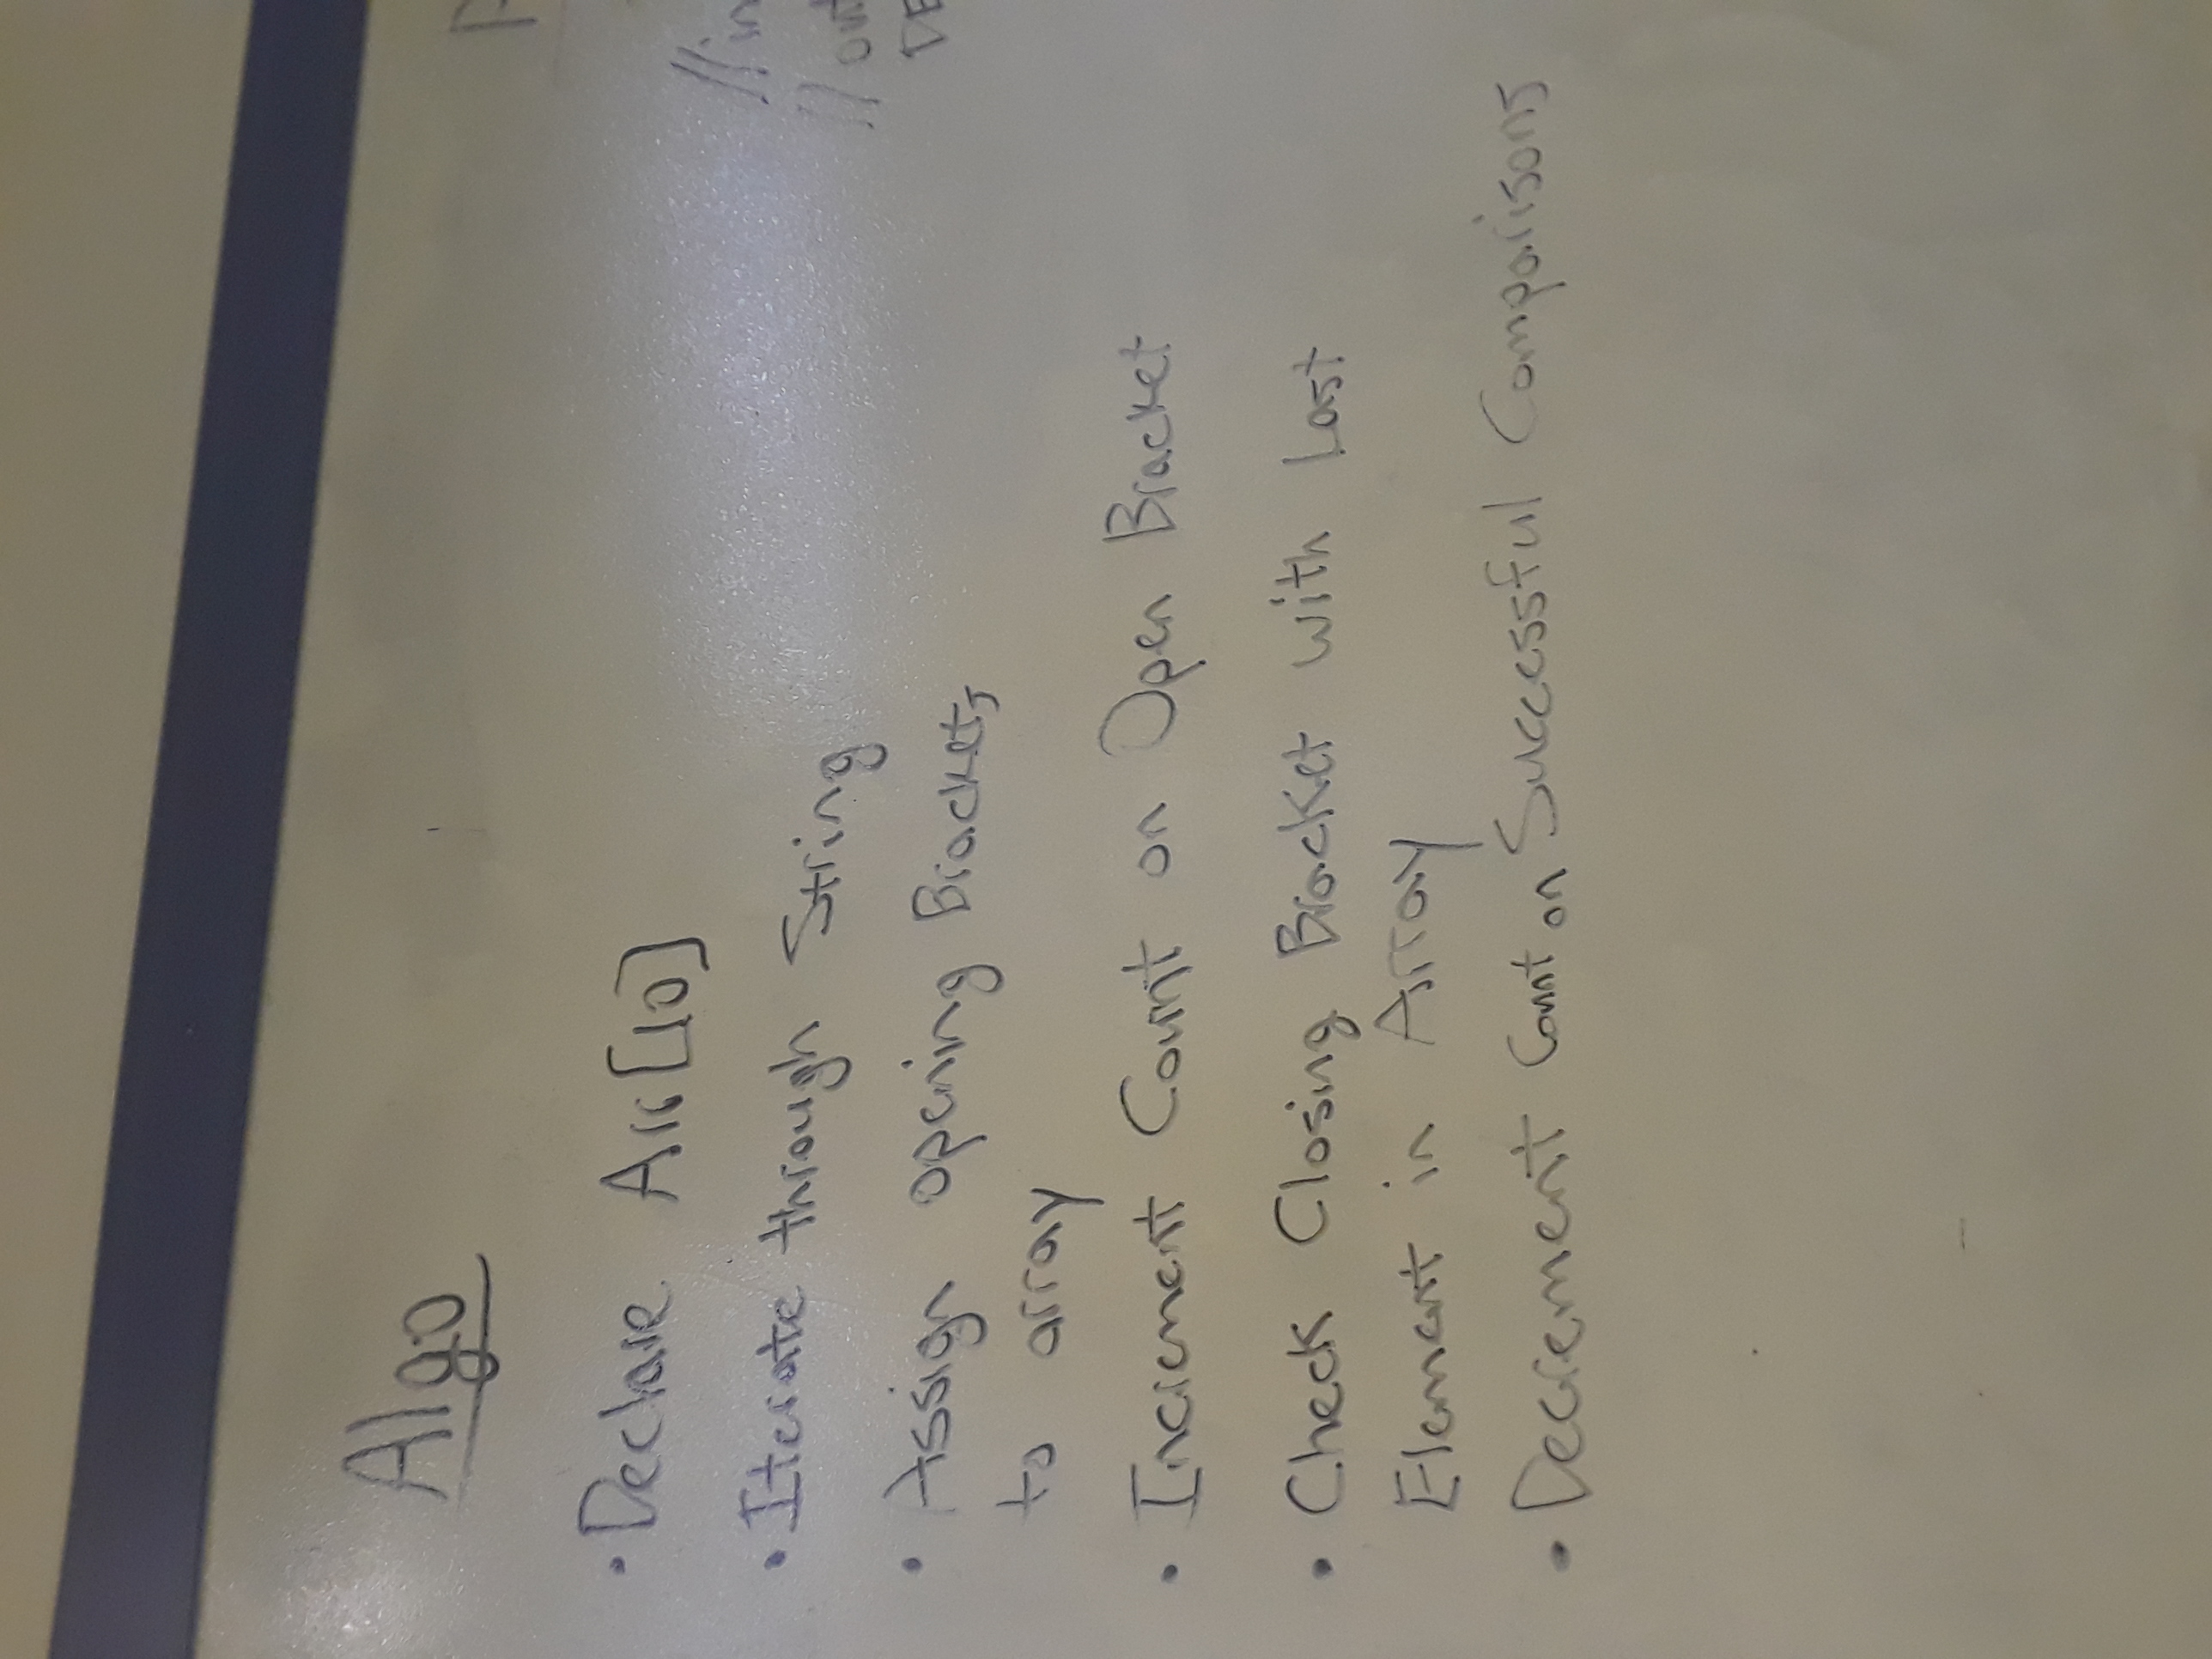 Algo
• Declare Arr[10]
• Iterate through String
• Assign opening Brackets
to array
• Increment Count on Open Bracket
• Check Closing Bracket with Last
Element in Array
• Decrement Count on Successful Comparisons
P
//in
//out
DE